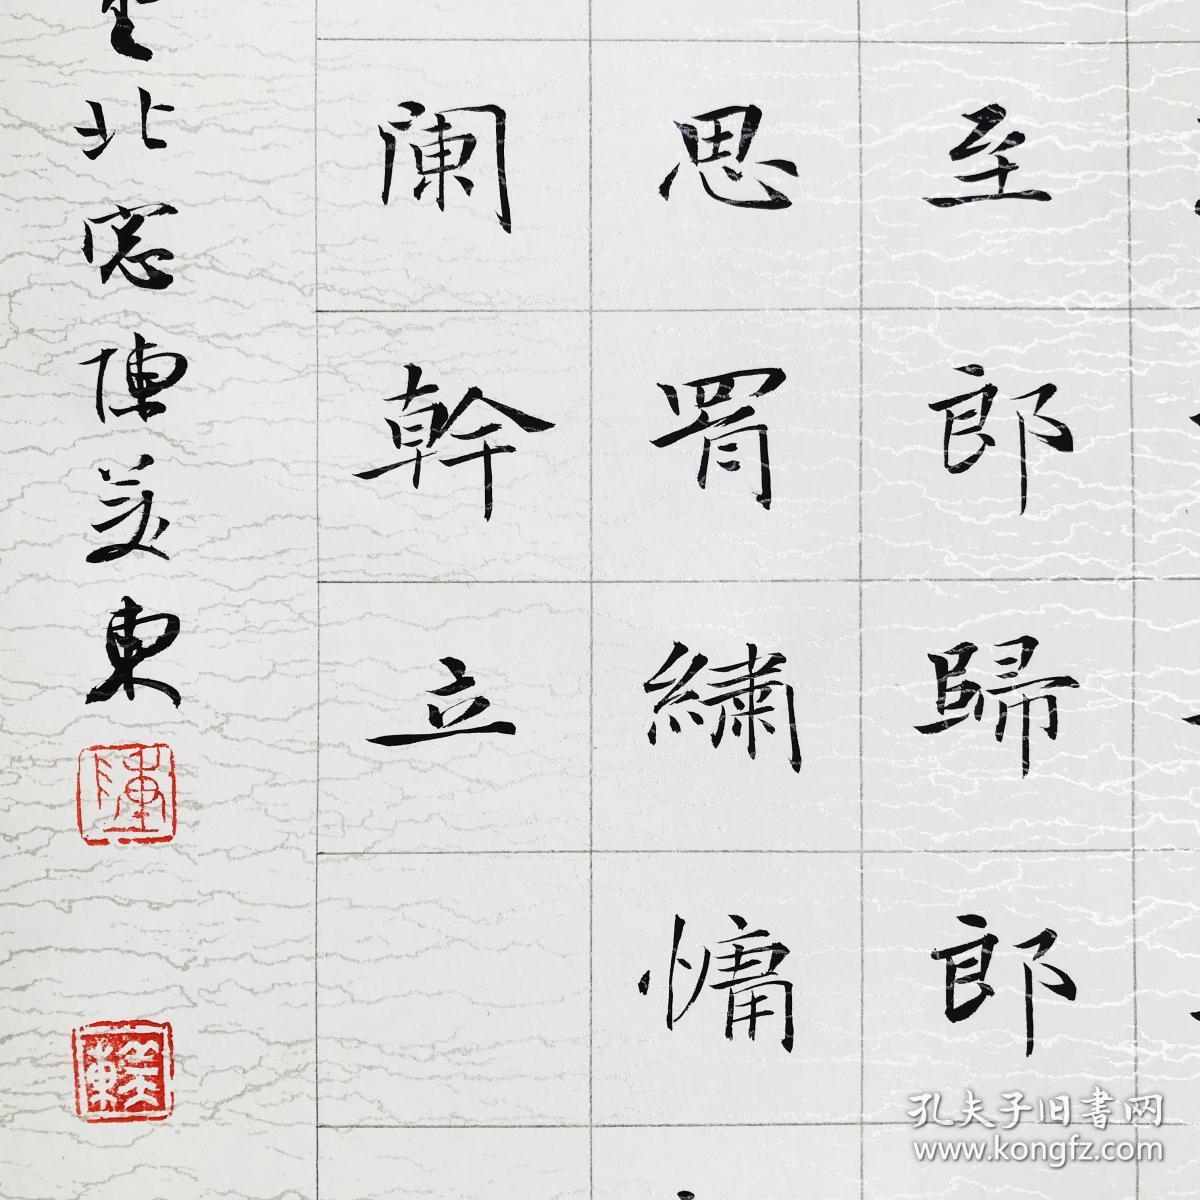 至郎歸郎
思罥繡慵
闌幹立
北窓陳美東
陳
美東
孔夫子旧書网
www.kongfz.com